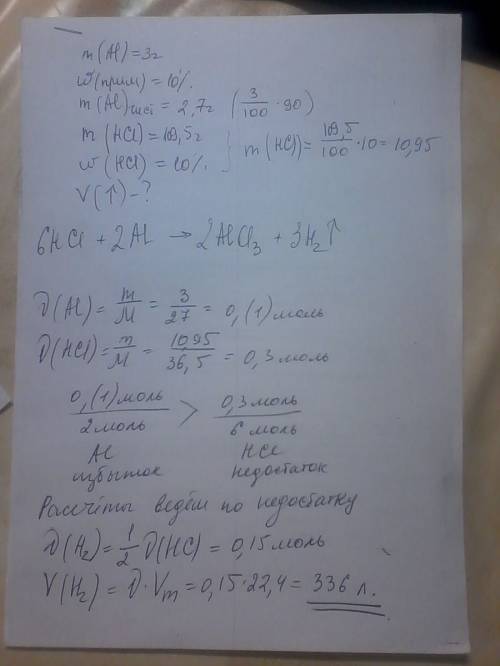 m(Al)=3г
ω(прим)=10%
m(Al)чист=2,7г (3/100·90)
m(HCl)=109,5г
ω(HCl)=10%. } m(HCl)=109,5/100·10=10,95
V(↑)-?
6HCl+2Al→2AlCl₃+3H₂↑
ν(Al)=m/M=3/27=0,(1)моль
ν(HCl)=m/M=10,95/36,5=0,3моль
0,(1)моль/2моль > 0,3моль/6моль
Al HCl
избыток недостаток
Рассчёты ведём по недостатку
ν(H₂)=1/2ν(HCl)=0,15моль
V(H₂)=ν·Vm=0,15·22,4=336 л.